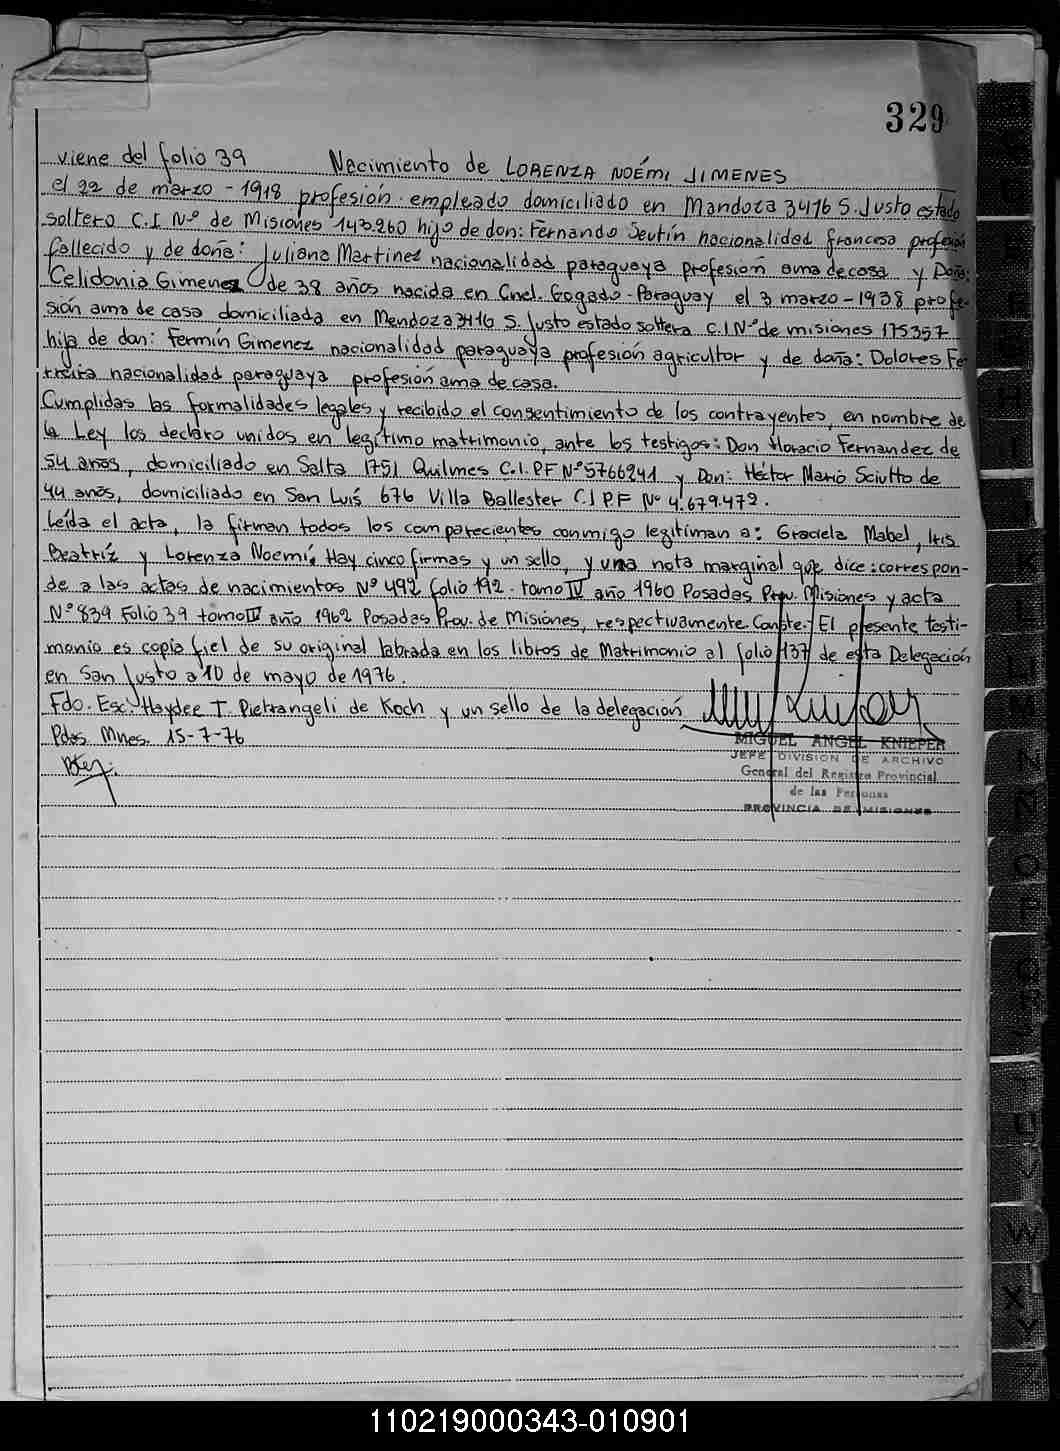 329
viene del folio 39 Nacimiento de LORENZA NOÉMI JIMENES
el 22 de marzo - 1918 profesión empleado domiciliado en Mandoza 3416 S. Justo estado
soltero C.I Nº de Misiones 143.260 hijo de don: Fernando Seutín nacionalidad francesa profesión
fallecido y de doña: Juliana Martinez nacionalidad paraguaya profesión ama de casa y Doña:
Celidonia Gimenez de 38 años nacida en Cnel. Gogado - Paraguay el 3 marzo - 1938 profe-
sión ama de casa domiciliada en Mendoza 3416 S. Justo estado soltera C.I Nº de misiones 175357
hija de don: Fermín Gimenez nacionalidad paraguaya profesión agricultor y de doña: Dolores Fe
rreira nacionalidad paraguaya profesión ama de casa.
Cumplidas las formalidades legales y recibido el consentimiento de los contrayentes, en nombre de
la Ley los declaro unidos en legítimo matrimonio, ante los testigos: Don Horacio Fernandez de
54 años, domiciliado en Salta 1751 Quilmes C.I.PF Nº 5766241 y Don: Héctor Mario Sciutto de
44 anós, domiciliado en San Luís 676 Villa Ballester C.I P.F Nº 4.679.472.
Leída el acta, la firman todos los comparecientes conmigo legitiman a: Graciela Mabel, Iris
Beatríz y Lorenza Noemí. Hay cinco firmas y un sello, y una nota marginal que dice: correspon-
de a las actas de nacimientos Nº 492 folio 192. tomo IV año 1960 Posadas Prov. Misiones y acta
Nº 839 Folio 39 tomo IV año 1962 Posadas Prov. de Misiones, respectivamente. Conste. El presente testi-
monio es copia fiel de su original labrada en los libros de Matrimonio al folio 137 de esta Delegación
en San Justo a 10 de mayo de 1976.
Fdo. Esc. Haydee T. Pietrangeli de Koch y un sello de la delegación
Pdas Mnes. 15-7-76
MIGUEL ANGEL KNIEPER
JEFE DIVISION DE ARCHIVO
General del Registro Provincial
de las Personas
PROVINCIA DE MISIONES
110219000343-010901